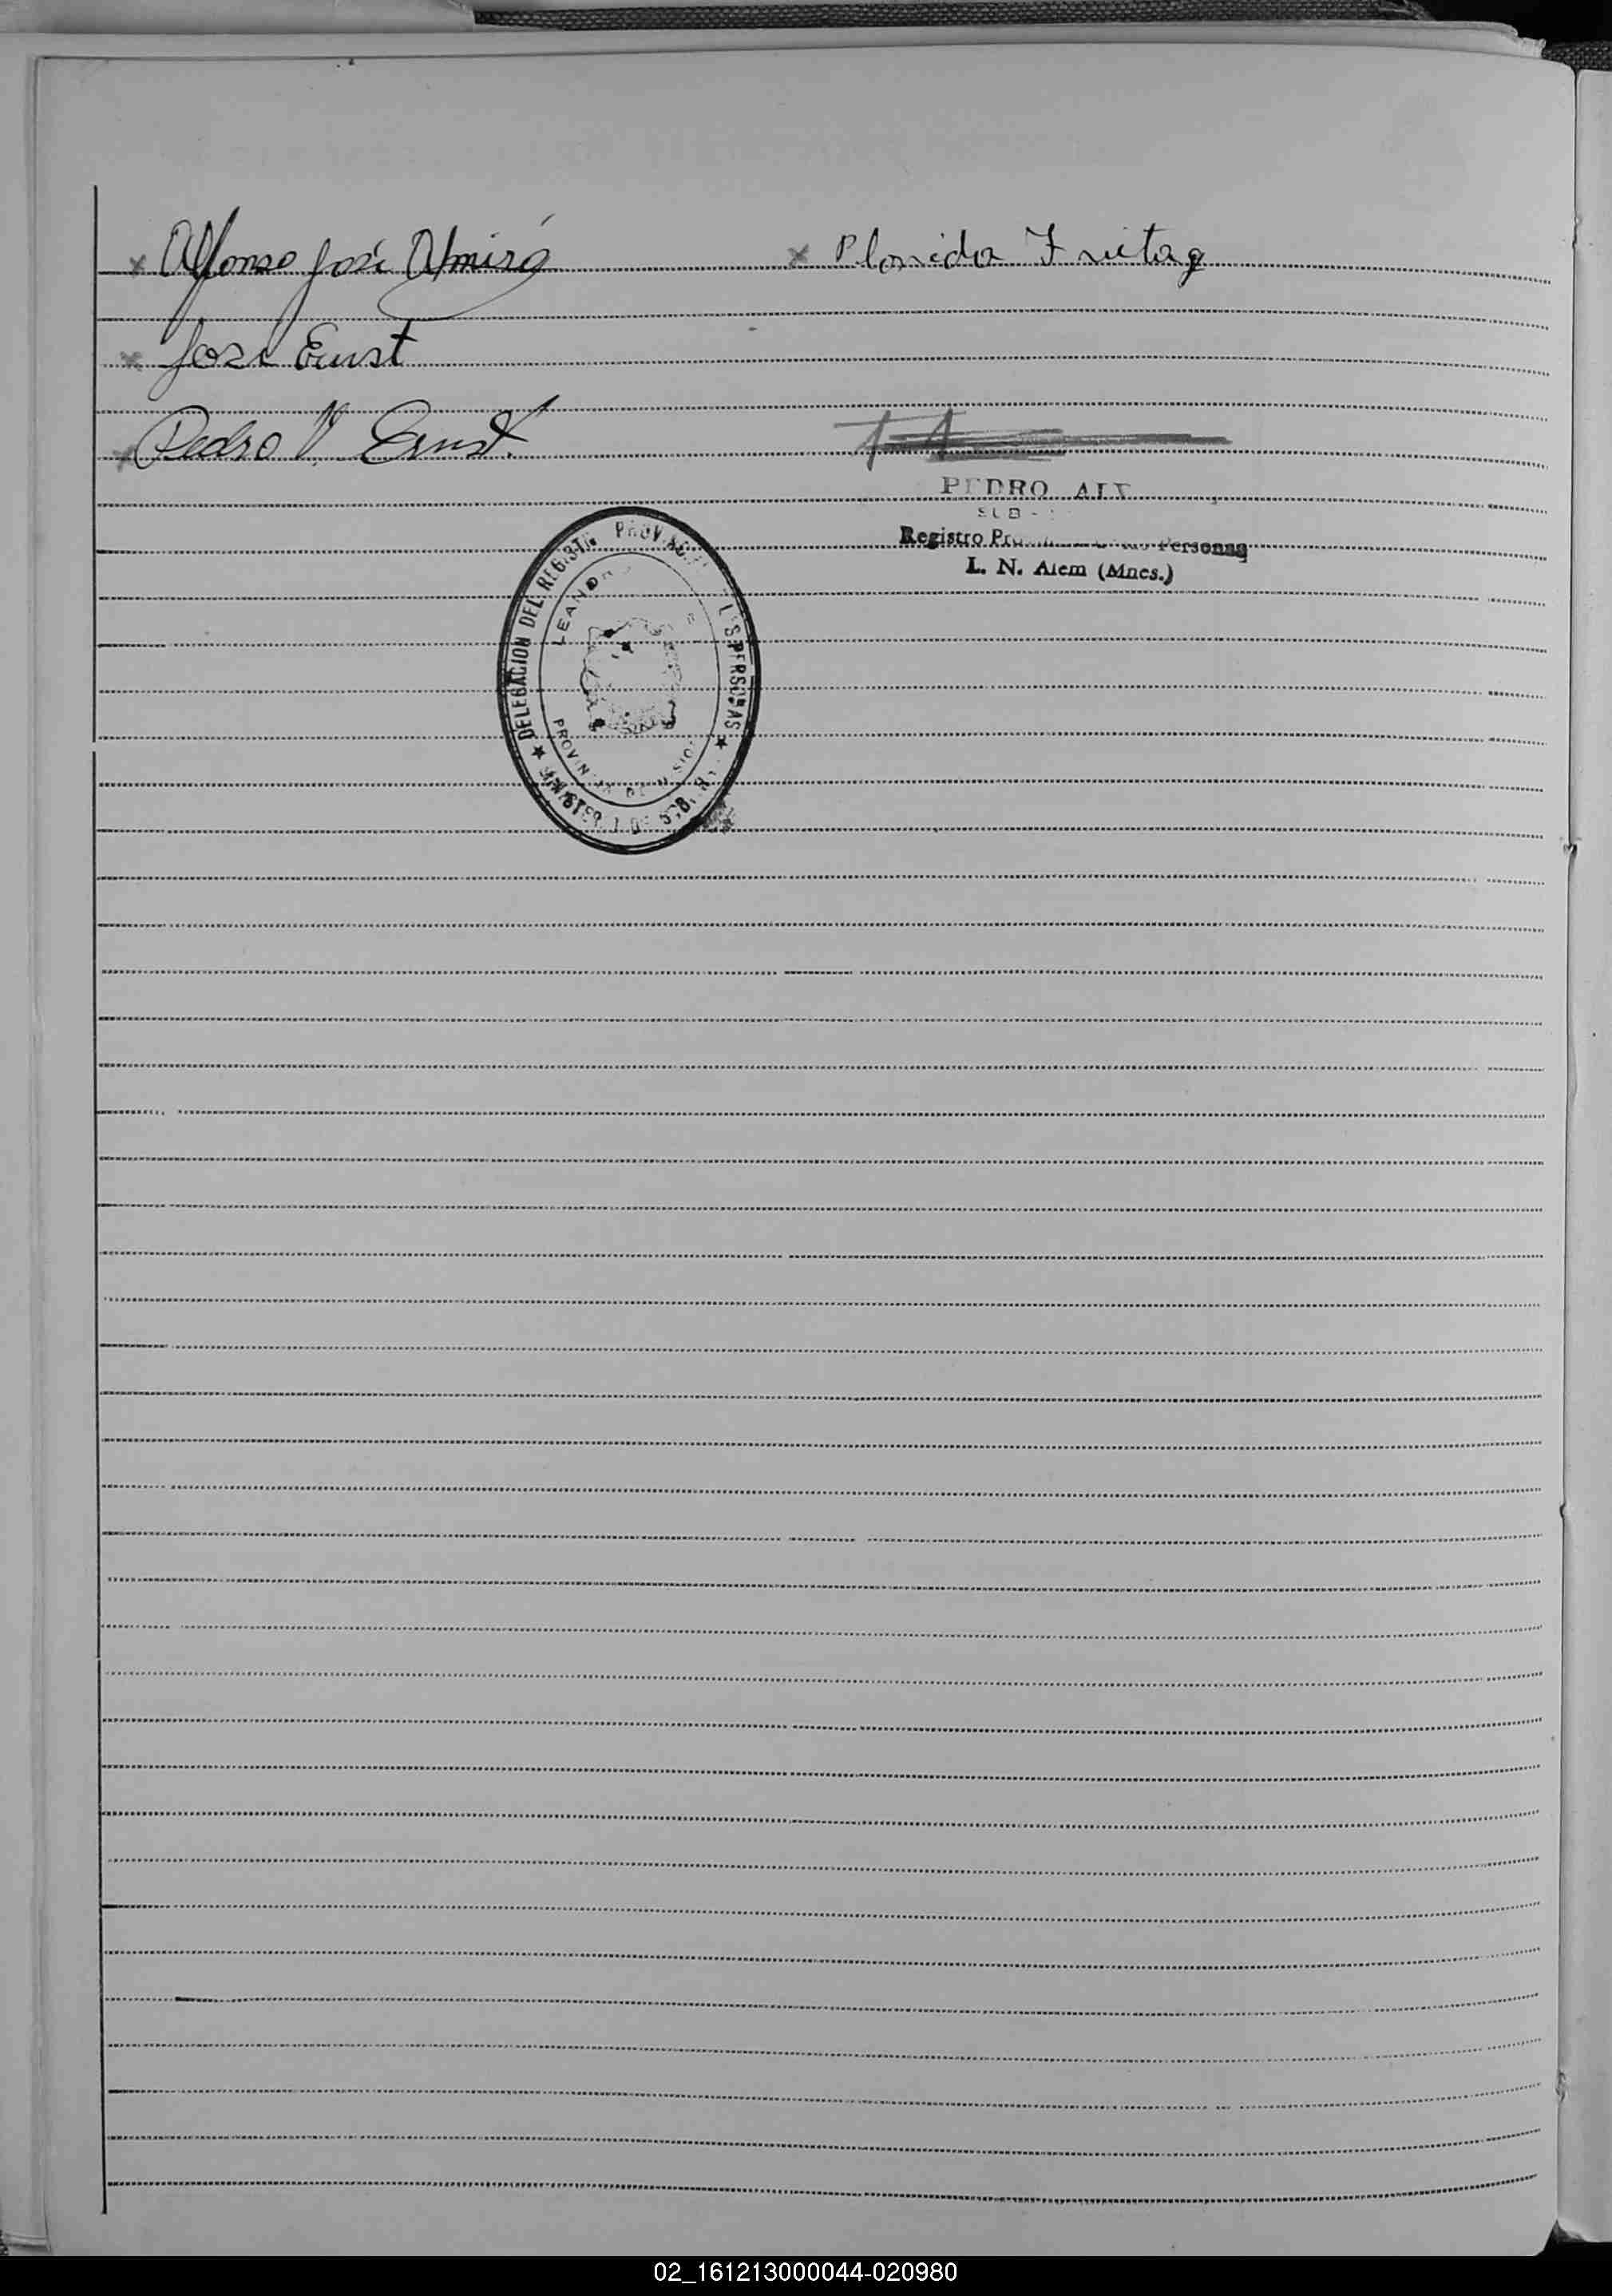 x Alfonso José Almiró x Plorida Freitag
x José Ernst
x Pedro V. Ernst.
PEDRO
SUB -
Registro Personas
L. N. Alem (Mnes.)
DELEGACION DEL REGISTRO PROVINCIAL PERSONAS
LEANDRO
PROVINCIA DE MISIONES
MINISTERIO DE
02_161213000044-020980